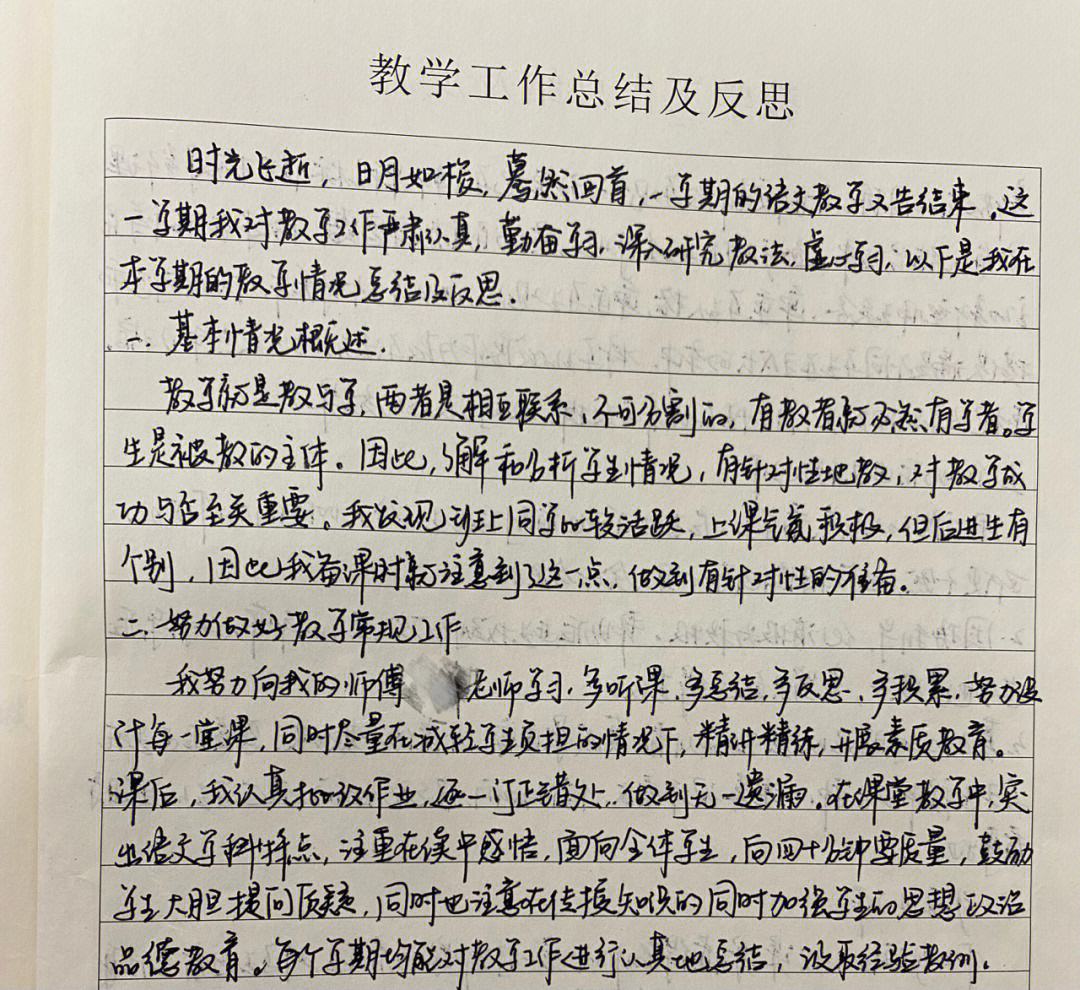 教学工作总结及反思
时光飞逝，日月如梭，蓦然回首，一学期的语文教学又告结束，这
一学期我对教学工作严肃认真，勤奋学习，深入研究教法，虚心学习，以下是我在
本学期的教学情况总结及反思．
一、基本情况概述．
教学就是教与学，两者是相互联系，不可分割的，有教者就必然有学者。学
生是被教的主体。因此，了解和分析学生情况，有针对性地教，对教学成
功与否至关重要。我发现班上同学比较活跃，上课气氛积极，但后进生有
个别，因此我备课时就注意到了这一点，做到有针对性的准备。
二、努力做好教学常规工作
我努力向我的师傅 老师学习，多听课，多总结，多反思，多积累，努力设
计每一堂课，同时尽量在减轻学生负担的情况下，精讲精练，开展素质教育。
课后，我认真批改作业，逐一订正错处，做到无一遗漏。在课堂教学中，突
出语文学科特点，注重在读中感悟，面向全体学生，向四十分钟要质量，鼓励
学生大胆提问质疑，同时也注意在传授知识的同时加强学生的思想政治
品德教育。每个学期均能对教学工作进行认真地总结，汲取经验教训．